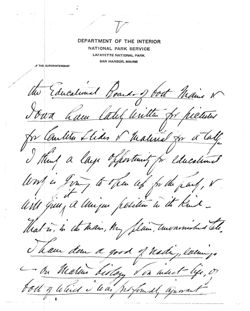 V
DEPARTMENT OF THE INTERIOR
NATIONAL PARK SERVICE
LAFAYETTE NATIONAL PARK
BAR HARBOR, MAINE
OF THE SUPERINTENDENT
the Educational Boards of both Maine &
Iowa have lately written for pictures
for lantern slides & material for a talk.
I think a large opportunity for educational
work is going to open up for the park, &
will give it a unique position in its kind.
That is, in the main, my plain, unvarnished tale.
I have done a good of reading evenings
on Marine biology & on insect life, of
both of which I was profoundly ignorant